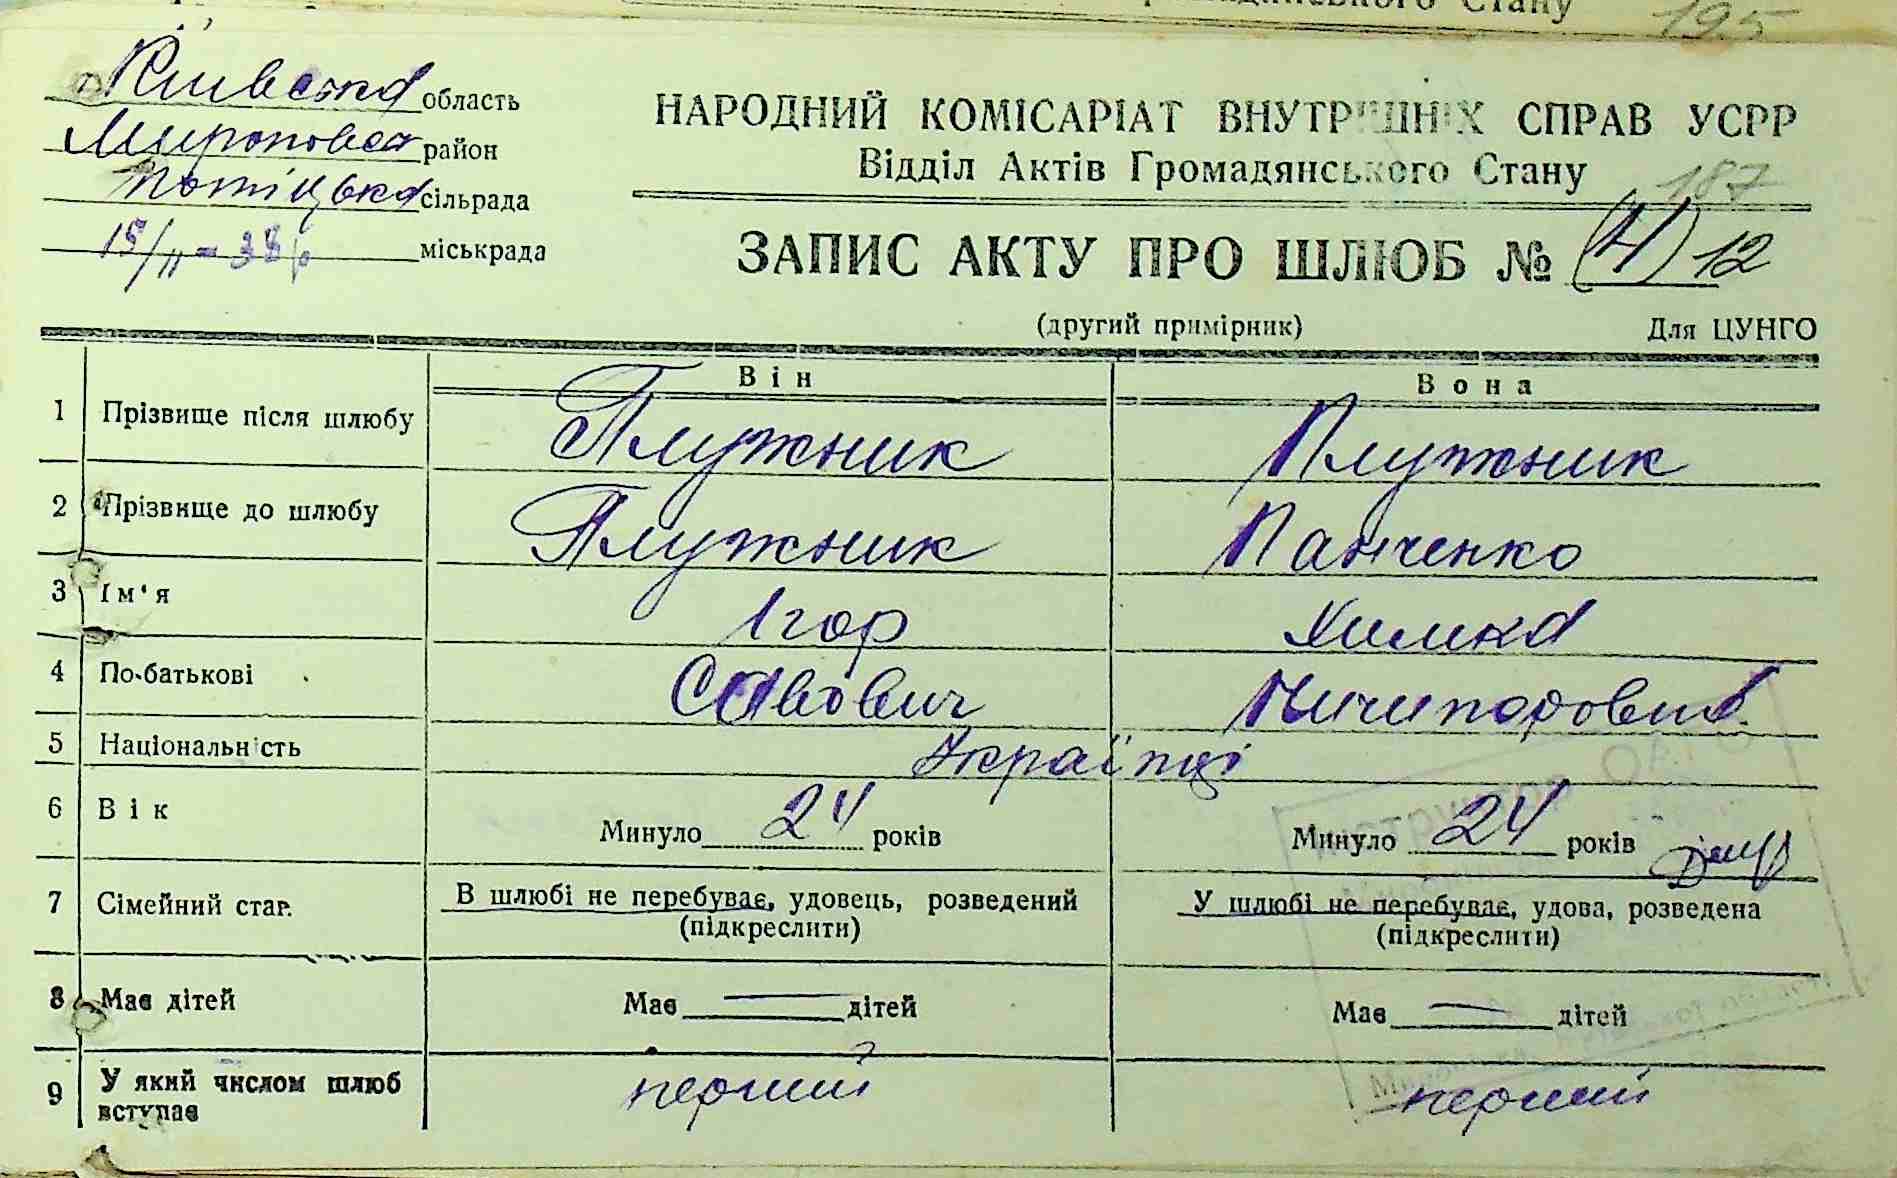 195
Київська область
Мироповса район
Потіцька сільрада
15/II-38р міськрада
НАРОДНИЙ КОМІСАРІАТ ВНУТРІШНІХ СПРАВ УСРР
Відділ Актів Громадянського Стану
187
ЗАПИС АКТУ ПРО ШЛЮБ № (Н) 12
(другий примірник) Для ЦУНГО
Він Вона
1 Прізвище після шлюбу Плужник Плужник
2 Прізвище до шлюбу Плужник Панченко
3 Ім'я Ігор Химка
4 По-батькові Савович Ничипоровна
5 Національність Українці
6 Вік Минуло 24 років Минуло 24 років
7 Сімейний стан В шлюбі не перебуває, удовець, розведений У шлюбі не перебуває, удова, розведена
(підкреслити) (підкреслити)
8 Має дітей Має — дітей Має — дітей
9 У який числом шлюб вступає перший перший